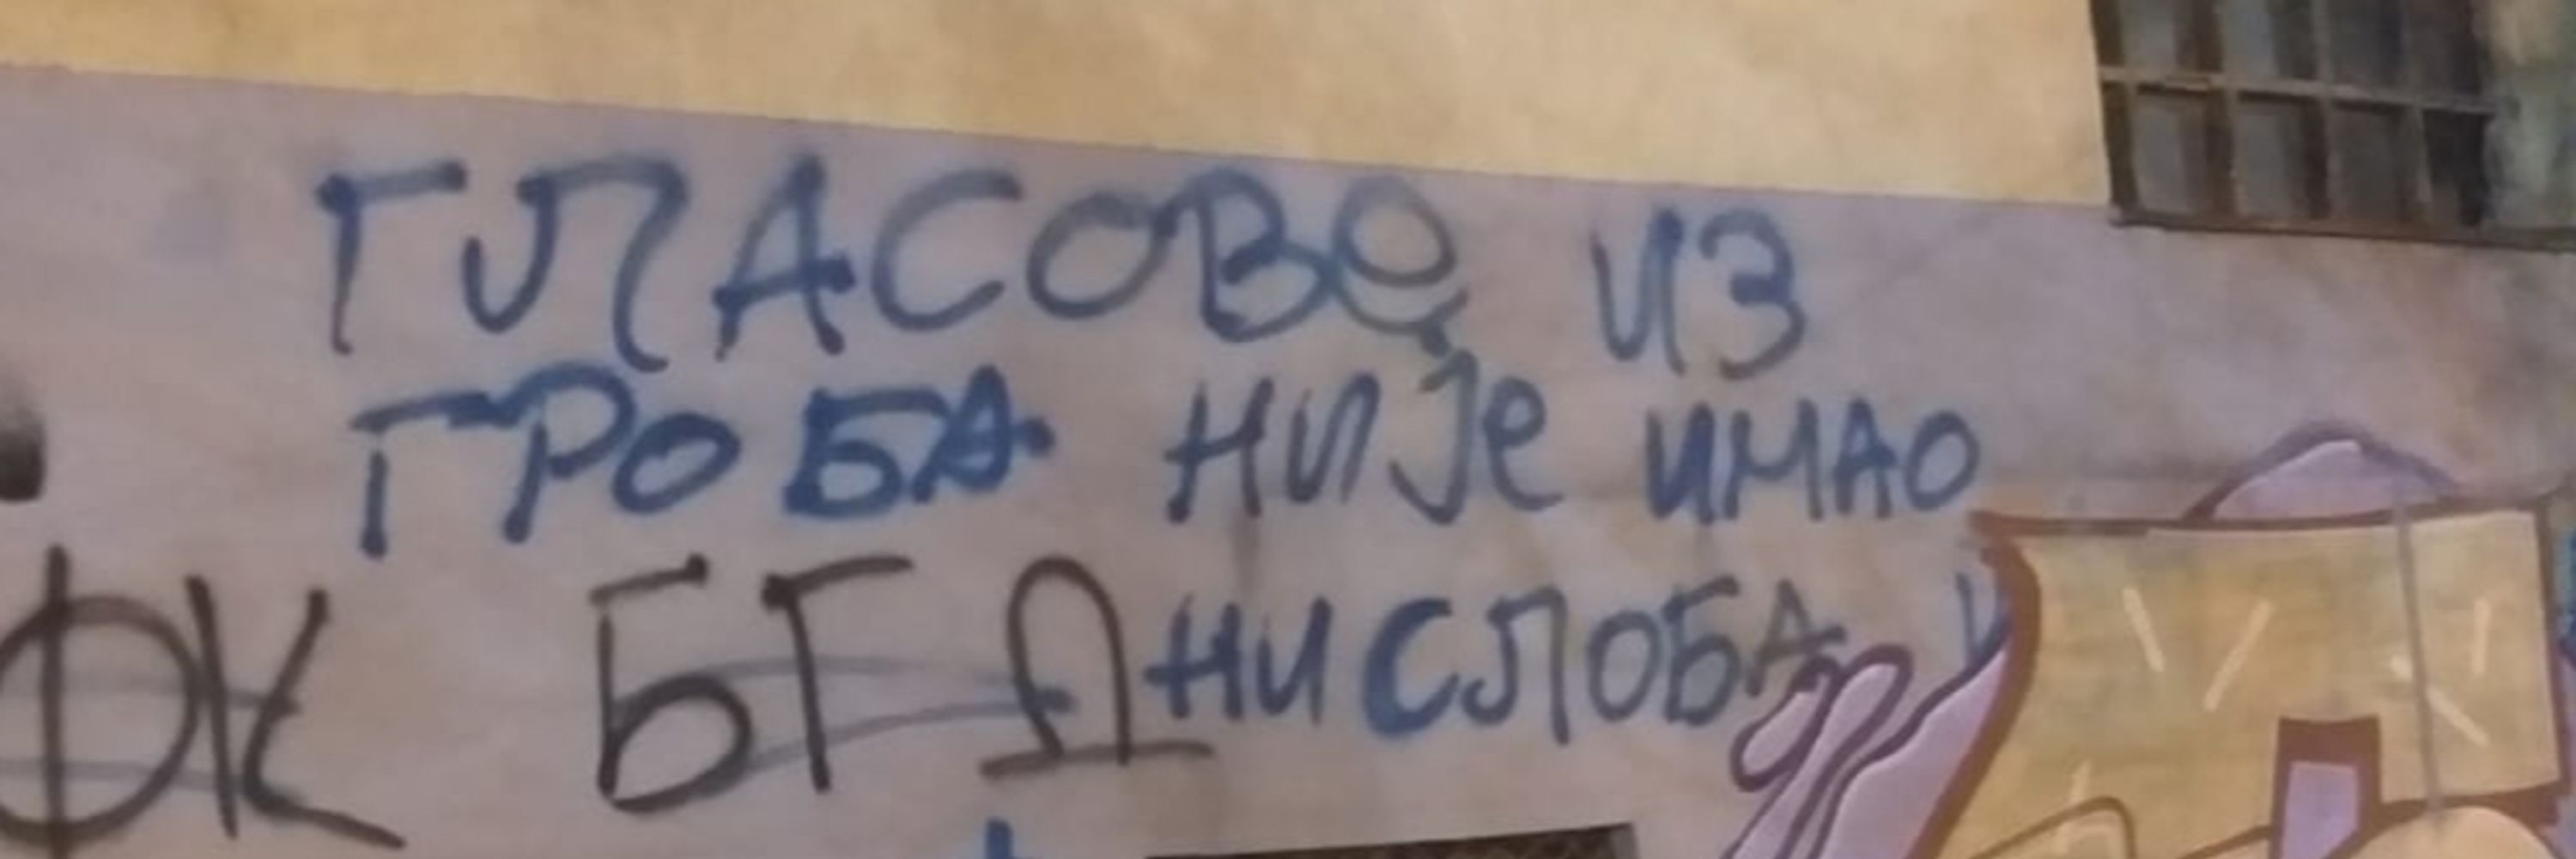 ГЛАСОВЕ ИЗ
ГРОБА НИЈЕ ИМАО
НИ СЛОБА
ФК БГД